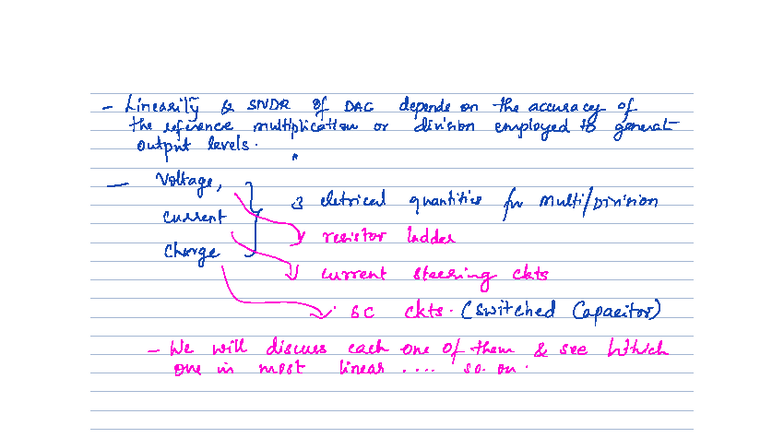 - Linearity & SNDR of DAC depends on the accuracy of
the reference multiplication or division employed to general
output levels.
- Voltage,
Current
Charge
3 eletrical quantities for Multi/Division
resistor ladder
current steering ckts
SC ckts. (Switched Capacitor)
- We will discuss each one of them & see which
one in most linear .... so on.